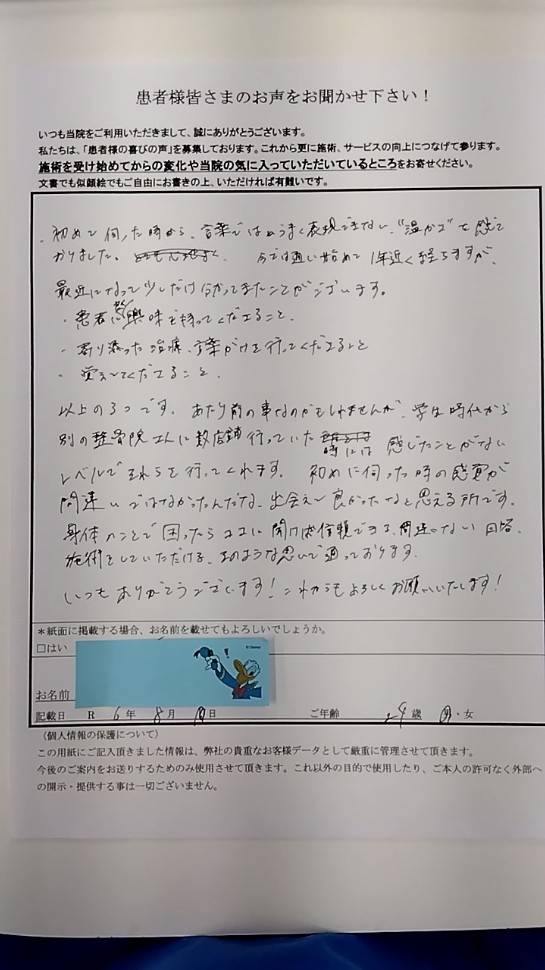 患者様皆さまのお声をお聞かせ下さい！
いつも当院をご利用いただきまして、誠にありがとうございます。
私たちは、「患者様の喜びの声」を募集しております。これから更に施術、サービスの向上につなげて参ります。
施術を受け始めてからの変化や当院の気に入っていただいているところをお寄せください。
文書でも似顔絵でもご自由にお書きの上、いただければ有難いです。
・初めて伺った時から、言葉ではうまく表現できない、"温かさ"を感じて
おりました。 今では通い始めて1年近く経ちますが、
最近になって少しだけ分かってきたことがございます。
・患者に興味を持ってくださること、
・寄り添った治療、言葉がけを行ってくださること
・覚えてくださること、
以上の3つです。あたり前の事なのかもしれませんが、学生時代から
別の整骨院さんに数店舗行っていた時には感じたことがない
レベルでそれらを行ってくれます。初めに伺った時の感覚が
間違いではなかったんだな、出会えて良かったなと思える所です。
身体のことで困ったらココに聞けば信頼できる、間違いのない回答、
施術をしていただける、そのような思いで通っております。
いつもありがとうございます！これからもよろしくお願いいたします！
＊紙面に掲載する場合、お名前を載せてもよろしいでしょうか。
□はい
お名前
© Disney
記載日 R 6年 8月 日 ご年齢 29歳 男・女
〈個人情報の保護について〉
この用紙にご記入頂きました情報は、弊社の貴重なお客様データとして厳重に管理させて頂きます。
今後のご案内をお送りするためのみ使用させて頂きます。これ以外の目的で使用したり、ご本人の許可なく外部へ
の開示・提供する事は一切ございません。